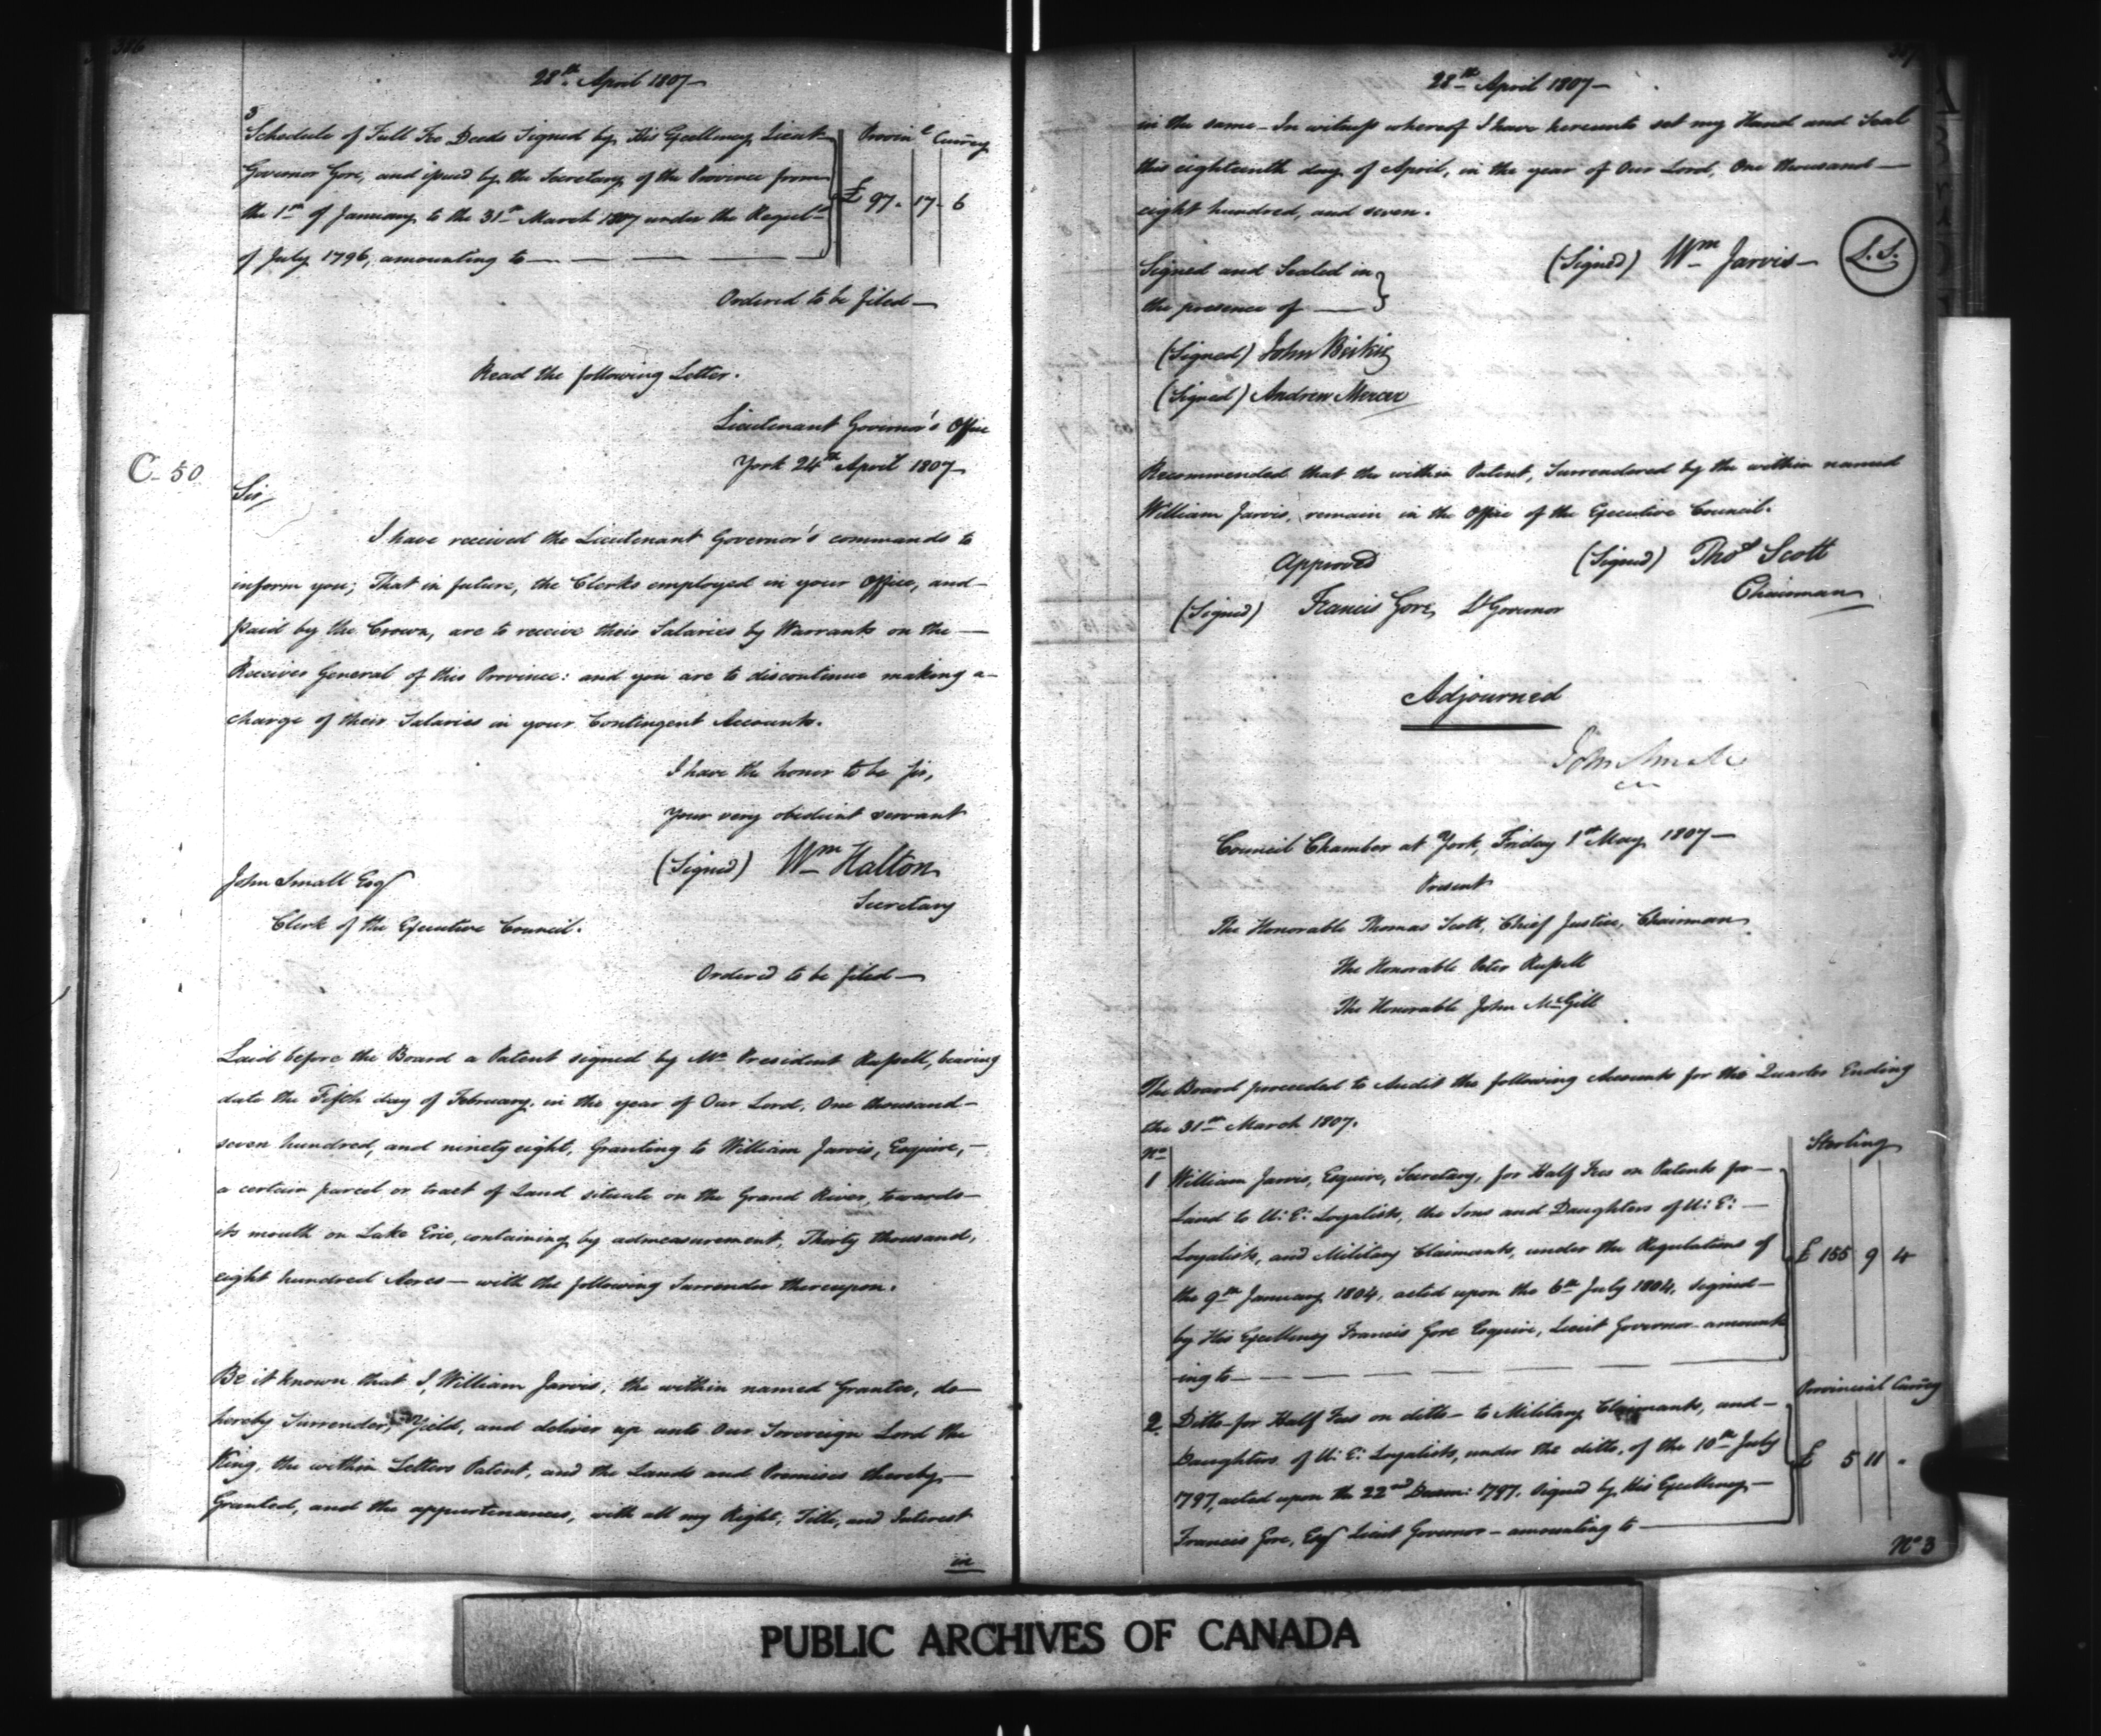 316
28th April 1807
3
Schedule of Full Fee Deeds Signed by His Excellency Lieut
Governor Gore, and issued by the Secretary of the Province from
the 1st of January to the 31st March 1807 under the Regul.ns
of July 1796, amounting to
Provin.l Currcy
£ 97. 17. 6
Ordered to be filed
Read the following Letter.
Lieutenant Governor's Office
York 24th April 1807
C-50
Sir,
I have received the Lieutenant Governor's commands to
inform you; That in future, the Clerks employed in your Office, and
Paid by the Crown, are to receive their Salaries by Warrants on the
Receiver General of this Province: and you are to discontinue making a
charge of their Salaries in your Contingent Accounts.
I have the honor to be Sir,
Your very obedient servant
(Signed) Wm Halton
Secretary
John Small Esqr
Clerk of the Executive Council.
Ordered to be filed
Laid before the Board a Patent signed by Mr President Russell, bearing
date the Fifth day of February, in the year of Our Lord, One thousand
seven hundred, and ninety eight, Granting to William Jarvis, Esquire,
a certain parcel or tract of Land situate on the Grand River, towards
its mouth on Lake Erie, containing by admeasurement, Thirty thousand,
eight hundred Acres — with the following Surrender thereupon.
Be it known that I, William Jarvis, the within named Grantee, do
hereby Surrender, Yield, and deliver up unto Our Sovereign Lord the
King, the within Letters Patent, and the Lands and Premises thereby
Granted, and the appurtenances, with all my Right, Title, and Interest
in
317
28th April 1807
in the same — In witness whereof I have hereunto set my Hand and Seal
this eighteenth day of April, in the year of Our Lord, One thousand
eight hundred, and seven.
(Signed) Wm Jarvis L.S.
Signed and Sealed in
the presence of
(Signed) John Beikie
(Signed) Andrew Mercer
Recommended that the within Patent, Surrendered by the within named
William Jarvis, remain in the Office of the Executive Council.
Approved
(Signed) Thos Scott
Chairman
(Signed) Francis Gore, Lt Governor
Adjourned
John Small
Council Chamber at York, Friday 1st May 1807
Present
The Honorable Thomas Scott, Chief Justice, Chairman
The Honorable Peter Russell
The Honorable John McGill
The Board proceeded to Audit the following Accounts for the Quarter Ending
the 31st March 1807.
No
Sterling
1 William Jarvis, Esquire, Secretary, for Half Fees on Patents for
Land to U: E: Loyalists, the Sons and Daughters of U: E:
Loyalists, and Military Claimants, under the Regulations of
the 9th January 1804, acted upon the 6th July 1804, signed
by His Excellency Francis Gore Esquire, Lieut Governor amount
ing to
£ 155 9 4
Provincial Currcy
2 Ditto for Half Fees on ditto to Military Claimants, and
Daughters of U: E: Loyalists, under the ditto, of the 10th July
1797, acted upon the 22nd Decem: 1797. Signed by His Excellency
Francis Gore, Esqr Lieut Governor — amounting to
£ 5 11 "
No 3
PUBLIC ARCHIVES OF CANADA